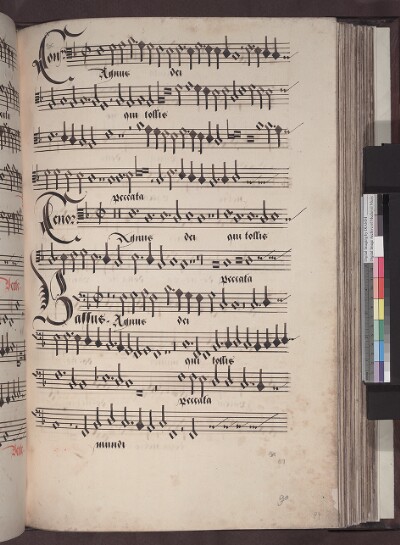 Con
Agnus dei
qui tollis
peccata
Tenor
Agnus dei qui tollis
peccata
Bassus. Agnus dei
qui tollis
peccata
mundi